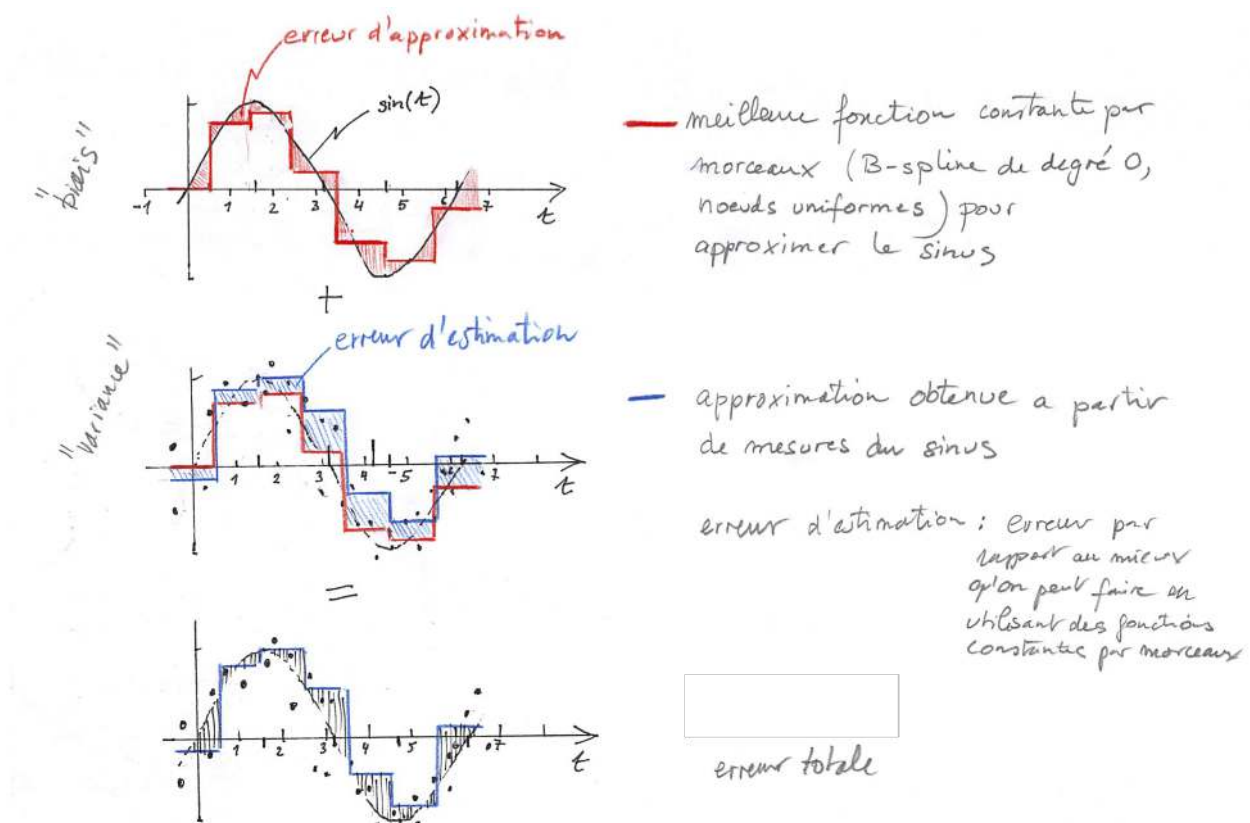 erreur d'approximation
sin(t)
"biais"
-1 1 2 3 4 5 6 7 t
meilleure fonction constante par
morceaux (B-spline de degré 0,
noeuds uniformes) pour
approximer le sinus
+
erreur d'estimation
"variance"
1 2 3 4 5 6 7 t
approximation obtenue a partir
de mesures du sinus
erreur d'estimation : erreur par
rapport au mieux
qu'on peut faire en
utilisant des fonctions
constantes par morceaux
=
1 2 3 4 5 6 7 t
erreur totale